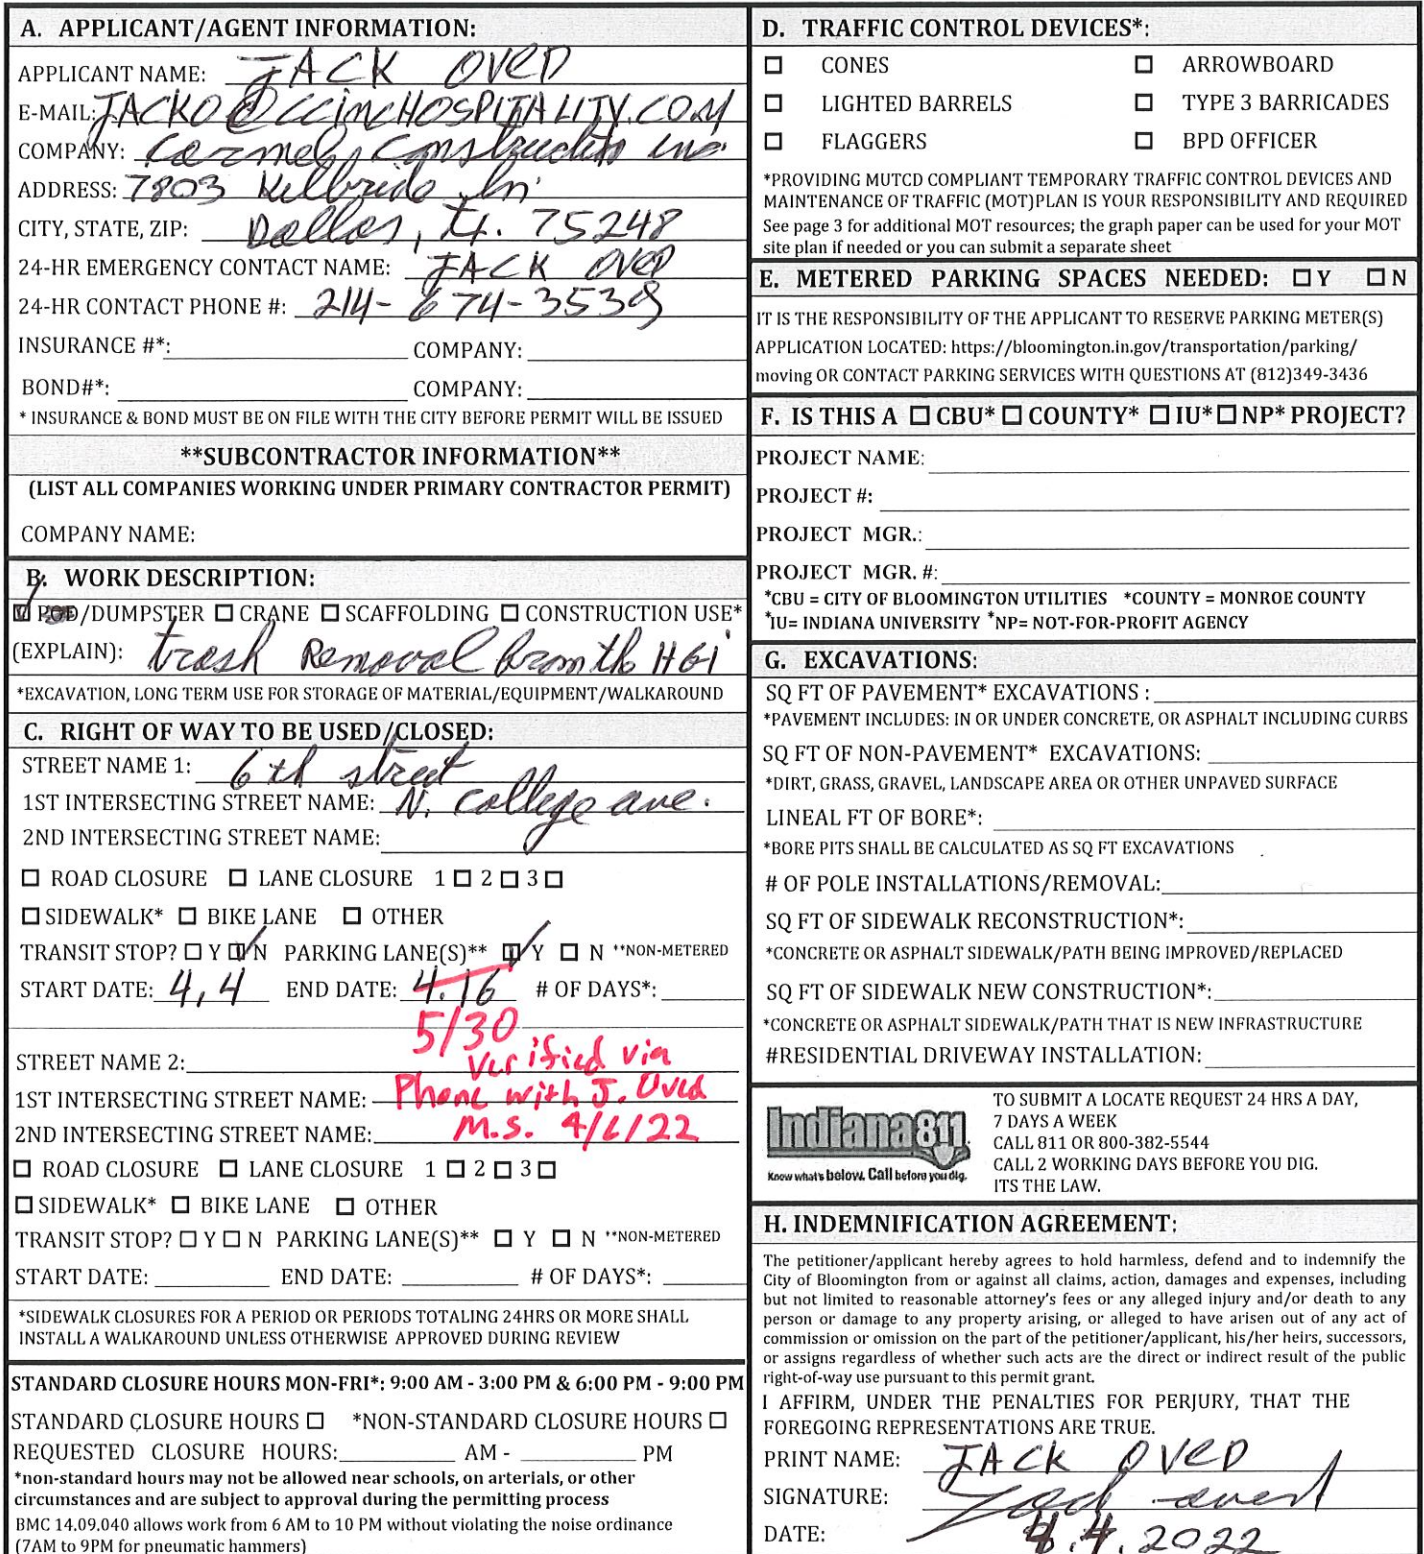 A. APPLICANT/AGENT INFORMATION:
APPLICANT NAME: JACK OVED
E-MAIL: JACKO@CCIMCHOSPITALITY.COM
COMPANY: Carmel Construction inc.
ADDRESS: 7803 Kilbride Ln.
CITY, STATE, ZIP: Dallas, Tx. 75248
24-HR EMERGENCY CONTACT NAME: JACK OVED
24-HR CONTACT PHONE #: 214-674-3538
INSURANCE #*: COMPANY:
BOND#*: COMPANY:
* INSURANCE & BOND MUST BE ON FILE WITH THE CITY BEFORE PERMIT WILL BE ISSUED
**SUBCONTRACTOR INFORMATION**
(LIST ALL COMPANIES WORKING UNDER PRIMARY CONTRACTOR PERMIT)
COMPANY NAME:
B. WORK DESCRIPTION:
POD/DUMPSTER CRANE SCAFFOLDING CONSTRUCTION USE*
(EXPLAIN): trash Removal from the HGI
*EXCAVATION, LONG TERM USE FOR STORAGE OF MATERIAL/EQUIPMENT/WALKAROUND
C. RIGHT OF WAY TO BE USED/CLOSED:
STREET NAME 1: 6th street
1ST INTERSECTING STREET NAME: N. college ave.
2ND INTERSECTING STREET NAME:
ROAD CLOSURE LANE CLOSURE 1 2 3
SIDEWALK* BIKE LANE OTHER
TRANSIT STOP? Y N PARKING LANE(S)** Y N **NON-METERED
START DATE: 4,4 END DATE: 4.16 # OF DAYS*:
5/30
Verified via
STREET NAME 2:
Phone with J. Oved
1ST INTERSECTING STREET NAME:
M.S. 4/6/22
2ND INTERSECTING STREET NAME:
ROAD CLOSURE LANE CLOSURE 1 2 3
SIDEWALK* BIKE LANE OTHER
TRANSIT STOP? Y N PARKING LANE(S)** Y N **NON-METERED
START DATE: END DATE: # OF DAYS*:
*SIDEWALK CLOSURES FOR A PERIOD OR PERIODS TOTALING 24HRS OR MORE SHALL
INSTALL A WALKAROUND UNLESS OTHERWISE APPROVED DURING REVIEW
STANDARD CLOSURE HOURS MON-FRI*: 9:00 AM - 3:00 PM & 6:00 PM - 9:00 PM
STANDARD CLOSURE HOURS *NON-STANDARD CLOSURE HOURS
REQUESTED CLOSURE HOURS: AM - PM
*non-standard hours may not be allowed near schools, on arterials, or other
circumstances and are subject to approval during the permitting process
BMC 14.09.040 allows work from 6 AM to 10 PM without violating the noise ordinance
(7AM to 9PM for pneumatic hammers)
D. TRAFFIC CONTROL DEVICES*:
CONES ARROWBOARD
LIGHTED BARRELS TYPE 3 BARRICADES
FLAGGERS BPD OFFICER
*PROVIDING MUTCD COMPLIANT TEMPORARY TRAFFIC CONTROL DEVICES AND
MAINTENANCE OF TRAFFIC (MOT)PLAN IS YOUR RESPONSIBILITY AND REQUIRED
See page 3 for additional MOT resources; the graph paper can be used for your MOT
site plan if needed or you can submit a separate sheet
E. METERED PARKING SPACES NEEDED: Y N
IT IS THE RESPONSIBILITY OF THE APPLICANT TO RESERVE PARKING METER(S)
APPLICATION LOCATED: https://bloomington.in.gov/transportation/parking/
moving OR CONTACT PARKING SERVICES WITH QUESTIONS AT (812)349-3436
F. IS THIS A CBU* COUNTY* IU* NP* PROJECT?
PROJECT NAME:
PROJECT #:
PROJECT MGR.:
PROJECT MGR. #:
*CBU = CITY OF BLOOMINGTON UTILITIES *COUNTY = MONROE COUNTY
*IU= INDIANA UNIVERSITY *NP= NOT-FOR-PROFIT AGENCY
G. EXCAVATIONS:
SQ FT OF PAVEMENT* EXCAVATIONS :
*PAVEMENT INCLUDES: IN OR UNDER CONCRETE, OR ASPHALT INCLUDING CURBS
SQ FT OF NON-PAVEMENT* EXCAVATIONS:
*DIRT, GRASS, GRAVEL, LANDSCAPE AREA OR OTHER UNPAVED SURFACE
LINEAL FT OF BORE*:
*BORE PITS SHALL BE CALCULATED AS SQ FT EXCAVATIONS
# OF POLE INSTALLATIONS/REMOVAL:
SQ FT OF SIDEWALK RECONSTRUCTION*:
*CONCRETE OR ASPHALT SIDEWALK/PATH BEING IMPROVED/REPLACED
SQ FT OF SIDEWALK NEW CONSTRUCTION*:
*CONCRETE OR ASPHALT SIDEWALK/PATH THAT IS NEW INFRASTRUCTURE
#RESIDENTIAL DRIVEWAY INSTALLATION:
Indiana811
Know what's below. Call before you dig.
TO SUBMIT A LOCATE REQUEST 24 HRS A DAY,
7 DAYS A WEEK
CALL 811 OR 800-382-5544
CALL 2 WORKING DAYS BEFORE YOU DIG.
ITS THE LAW.
H. INDEMNIFICATION AGREEMENT:
The petitioner/applicant hereby agrees to hold harmless, defend and to indemnify the
City of Bloomington from or against all claims, action, damages and expenses, including
but not limited to reasonable attorney's fees or any alleged injury and/or death to any
person or damage to any property arising, or alleged to have arisen out of any act of
commission or omission on the part of the petitioner/applicant, his/her heirs, successors,
or assigns regardless of whether such acts are the direct or indirect result of the public
right-of-way use pursuant to this permit grant.
I AFFIRM, UNDER THE PENALTIES FOR PERJURY, THAT THE
FOREGOING REPRESENTATIONS ARE TRUE.
PRINT NAME: JACK OVED
SIGNATURE: Jack oved
DATE: 4.4.2022